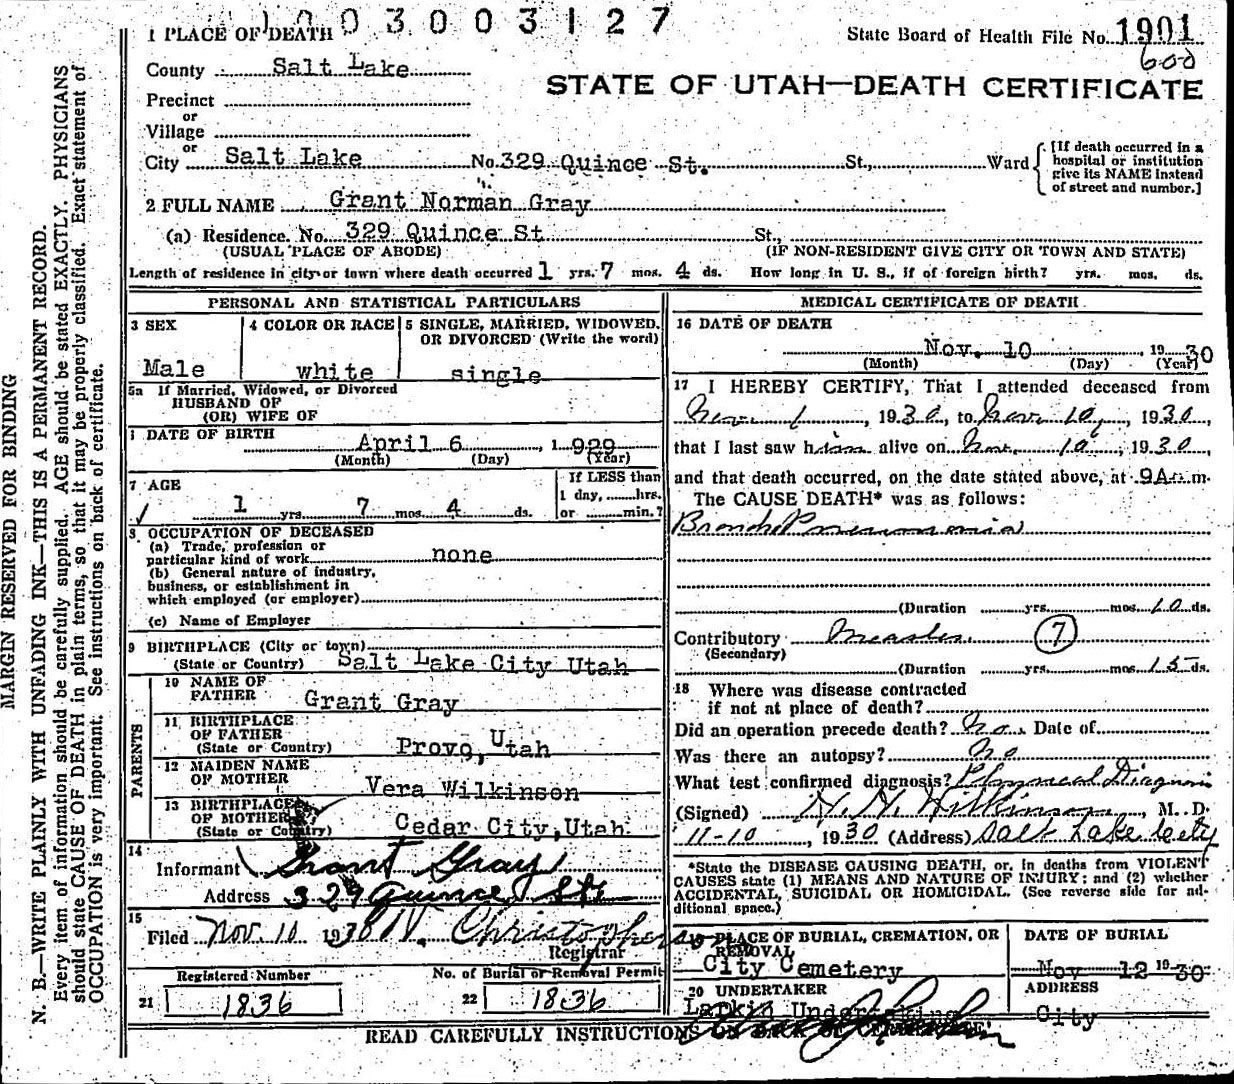 1003003127
1 PLACE OF DEATH
State Board of Health File No. 1901
600
County Salt Lake
STATE OF UTAH—DEATH CERTIFICATE
Precinct
or
Village
or
City Salt Lake No. 329 Quince St. St., Ward
[If death occurred in a
hospital or institution
give its NAME instead
of street and number.]
2 FULL NAME Grant Norman Gray
(a) Residence. No. 329 Quince St St.,
(USUAL PLACE OF ABODE) (IF NON-RESIDENT GIVE CITY OR TOWN AND STATE)
Length of residence in city or town where death occurred 1 yrs. 7 mos. 4 ds. How long in U. S., if of foreign birth? yrs. mos. ds.
PERSONAL AND STATISTICAL PARTICULARS
3 SEX
Male
4 COLOR OR RACE
white
5 SINGLE, MARRIED, WIDOWED,
OR DIVORCED (Write the word)
single
5a If Married, Widowed, or Divorced
HUSBAND OF
(OR) WIFE OF
DATE OF BIRTH
April 6, 1929
(Month) (Day) (Year)
7 AGE
1 yrs. 7 mos. 4 ds.
If LESS than
1 day, hrs.
or min.?
8 OCCUPATION OF DECEASED
(a) Trade, profession or
particular kind of work none
(b) General nature of industry,
business, or establishment in
which employed (or employer)
(c) Name of Employer
9 BIRTHPLACE (City or town)
(State or Country) Salt Lake City Utah
PARENTS
10 NAME OF
FATHER Grant Gray
11 BIRTHPLACE
OF FATHER
(State or Country) Provo, Utah
12 MAIDEN NAME
OF MOTHER Vera Wilkinson
13 BIRTHPLACE
OF MOTHER
(State or Country) Cedar City, Utah
14
Informant Grant Gray
Address 329 Quince St.
15
Filed Nov. 10 1930 W. Christopherson
Registrar
Registered Number
21 1836
No. of Burial or Removal Permit
22 1836
MEDICAL CERTIFICATE OF DEATH
16 DATE OF DEATH
Nov. 10, 1930
(Month) (Day) (Year)
17 I HEREBY CERTIFY, That I attended deceased from
Nov 1, 1930, to Nov 10, 1930,
that I last saw him alive on Nov. 10, 1930,
and that death occurred, on the date stated above, at 9A m.
The CAUSE DEATH* was as follows:
Broncho Pneumonia
(Duration yrs. mos. 10 ds.
Contributory Measles 7
(Secondary)
(Duration yrs. mos. 15 ds.
18 Where was disease contracted
if not at place of death?
Did an operation precede death? No. Date of
Was there an autopsy? No
What test confirmed diagnosis? Physical Diagnosis
(Signed) H. N. Wilkinson, M. D.
11-10, 1930 (Address) Salt Lake City
*State the DISEASE CAUSING DEATH, or, in deaths from VIOLENT
CAUSES state (1) MEANS AND NATURE OF INJURY; and (2) whether
ACCIDENTAL, SUICIDAL OR HOMICIDAL. (See reverse side for ad-
ditional space.)
19 PLACE OF BURIAL, CREMATION, OR
REMOVAL
City Cemetery
DATE OF BURIAL
Nov 12 1930
20 UNDERTAKER
Larkin Undertaking
ADDRESS
City
READ CAREFULLY INSTRUCTIONS ON BACK OF CERTIFICATE
MARGIN RESERVED FOR BINDING
N. B.—WRITE PLAINLY WITH UNFADING INK—THIS IS A PERMANENT RECORD.
Every item of information should be carefully supplied. AGE should be stated EXACTLY. PHYSICIANS
should state CAUSE OF DEATH in plain terms, so that it may be properly classified. Exact statement of
OCCUPATION is very important. See instructions on back of certificate.